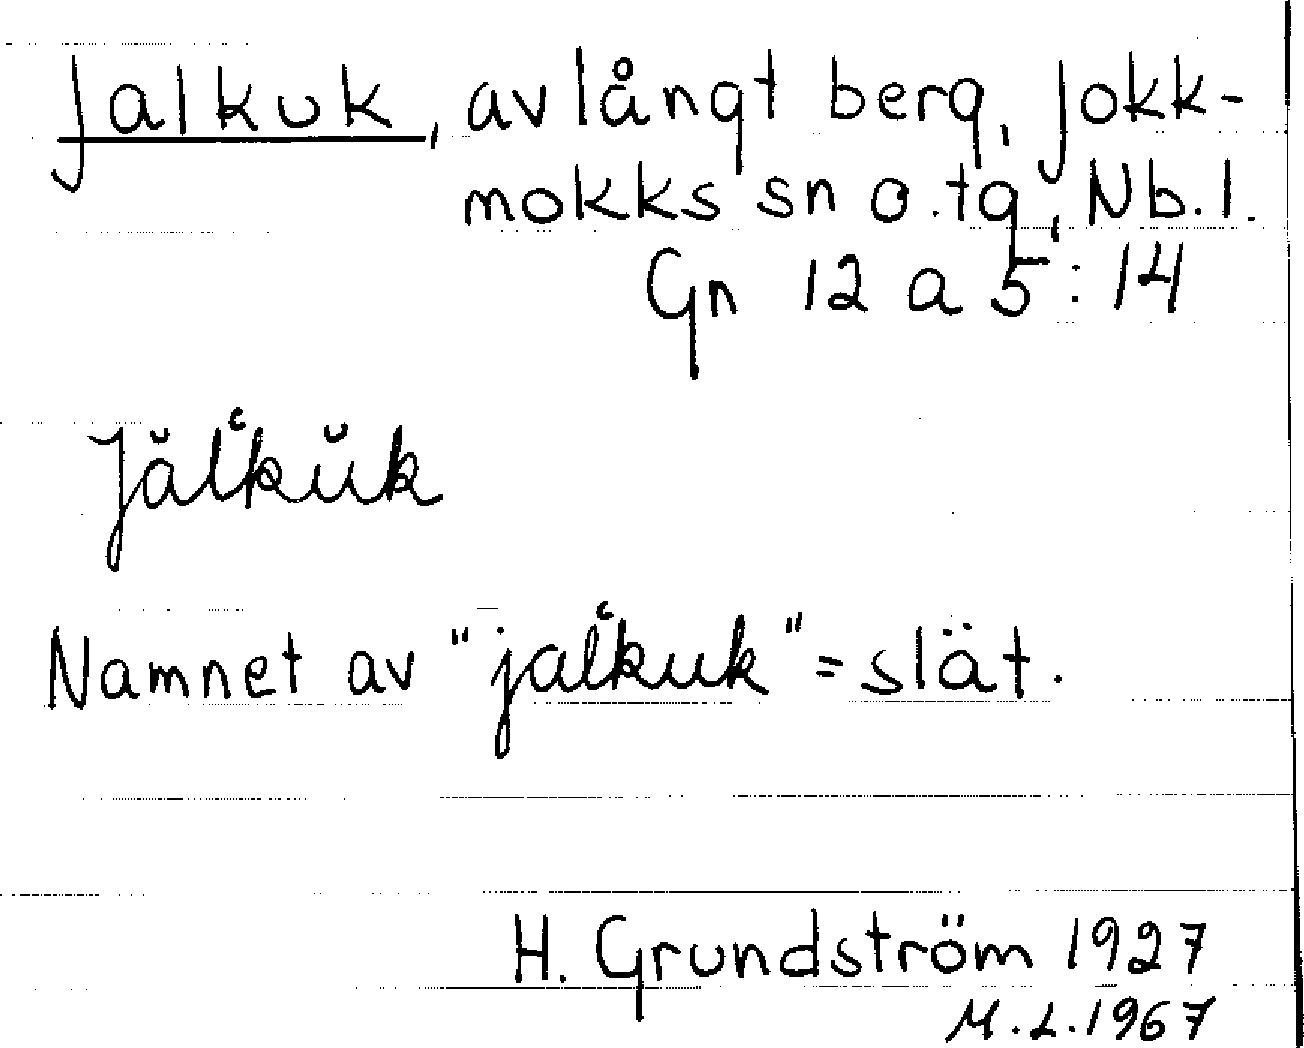 Jalkuk, avlångt berg, Jokk-
mokks sn o. tg, Nb. l.
Gn 12 a 5:14
Jălʿkŭk
Namnet av "jalʿkuk" = slät.
H. Grundström 1927
M.L. 1967